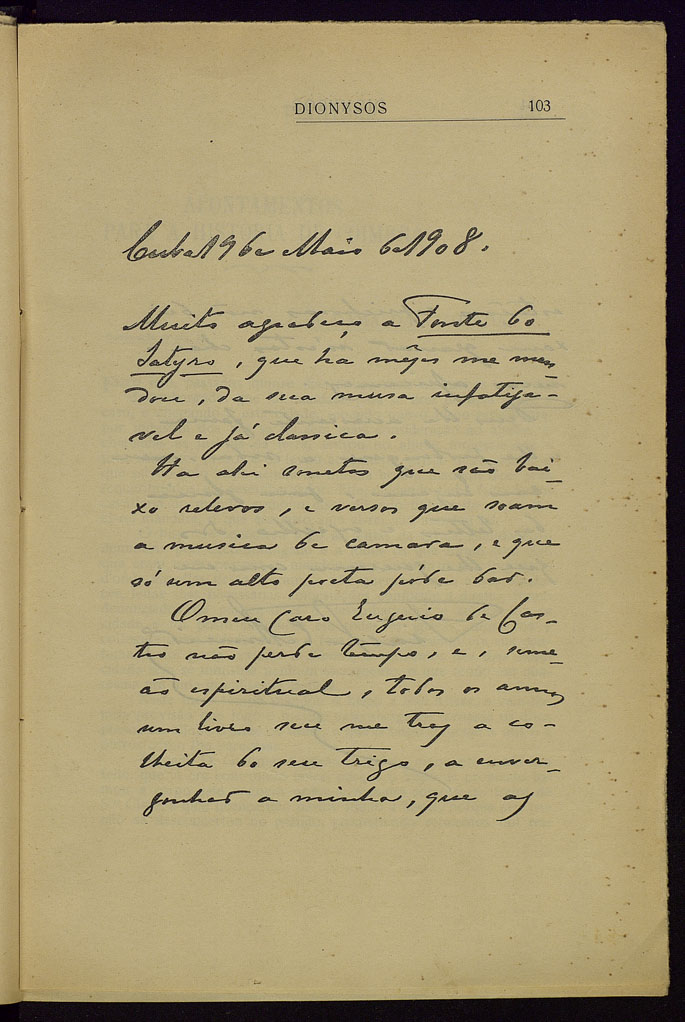 DIONYSOS 103
Cuba 19 de Maio de 1908.
Muito agradeço a Fonte do
Satyro, que há mêses me man-
dou, da sua musa infatiga-
vel e já classica.
Ha ahi sonetos que são bai-
xo relevos, e versos que soam
a musica de camara, e que
só um alto poeta póde dar.
O meu Caro Eugenio de Cas-
tro não perde tempo, e,
espiritual, todos os annos
um livro seu me traz a co-
lheita do seu trigo, a enver-
gonhar a minha, que as